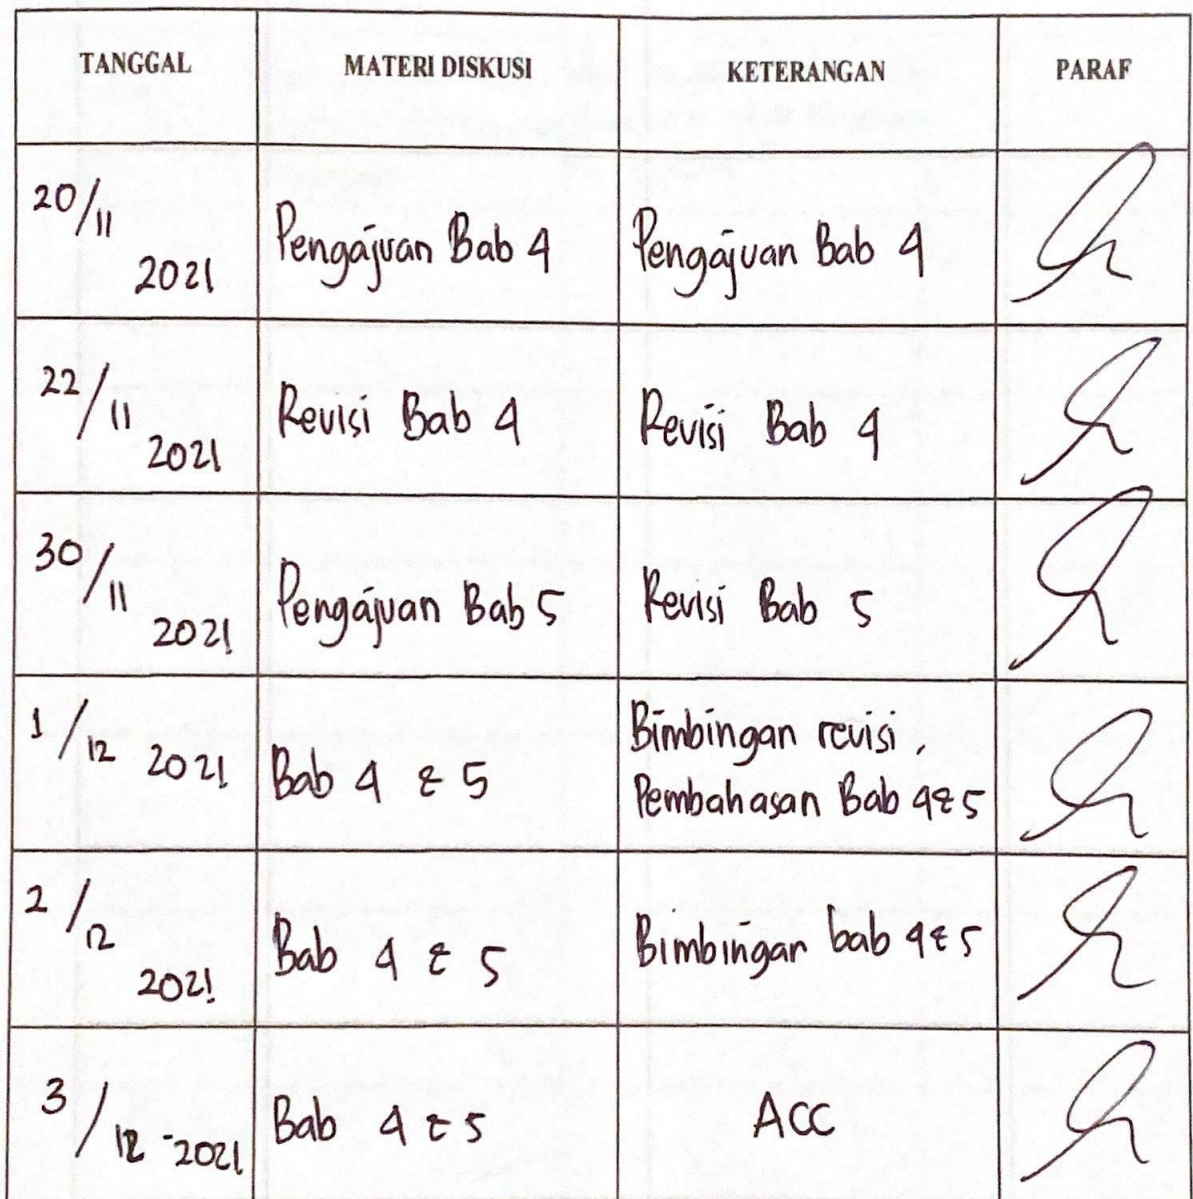 TANGGAL MATERI DISKUSI KETERANGAN PARAF
20/11 2021 Pengajuan Bab 4 Pengajuan Bab 4
22/11 2021 Revisi Bab 4 Revisi Bab 4
30/11 2021 Pengajuan Bab 5 Revisi Bab 5
1/12 2021 Bab 4 & 5 Bimbingan revisi,
Pembahasan Bab 4&5
2/12 2021 Bab 4 & 5 Bimbingan bab 4&5
3/12-2021 Bab 4 & 5 ACC